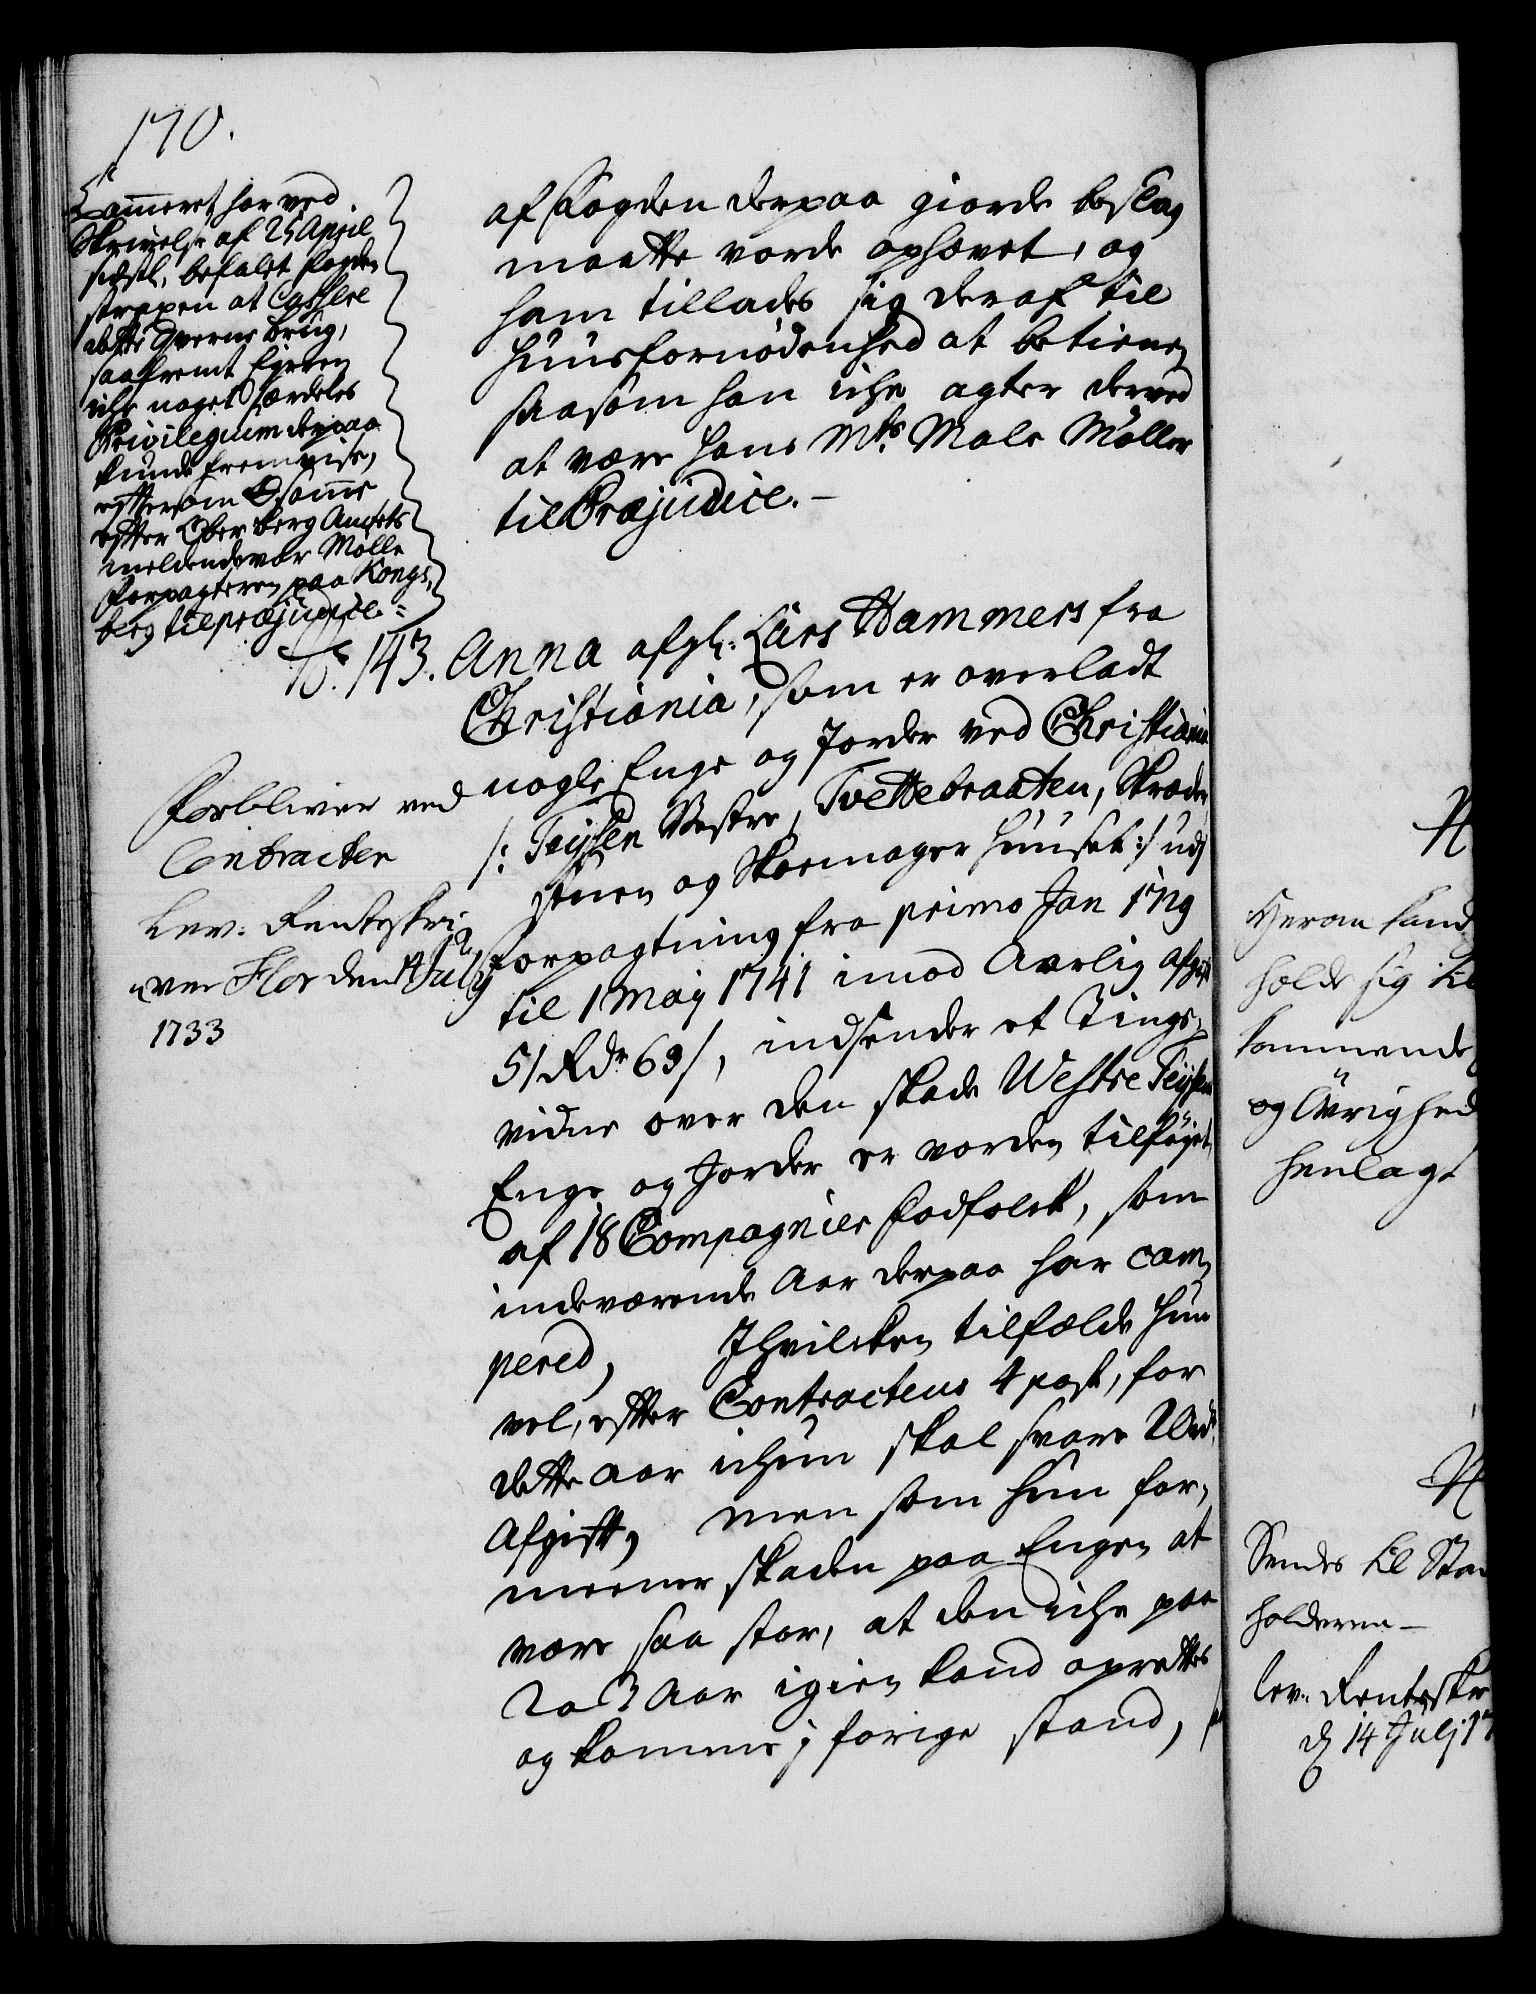 170.
Cammeret har ved
Skrivelse af 25 April
sidstl, befalet fogden
strax at Cassere
dette Qverne brug,
saafremt Eyeren
iche noget særdeles
Privilegium derpaa
kunde fremvise,
efftersom samme
effter Ober Berg Amtets
meldende var Mølle
Forpagteren paa Kongs,
berg til præjudice.
af Fogden derpaa giorde beslag
maatte vorde ophævet, og
ham tillades sig deraf til
Huusfornødenhed at betiene,
saasom han iche agter derved
at være hans Mts Male Møller
til Præjudice. -
No. 143. Anna afgl: Lars Hammers fra
Christiania, som er overladt
nogle Enge og Jorder ved Christiania
/: Teyhen Vestre, Tvettebraaten, Skræder
stuen og Skoemager Huuset :/ udj
Forpagtning fra primo Jan 1729
til 1 Maj 1741 imod Aarlig afgift
51 Rdr 63 /, indsender et Tings,
vidne over den skade Westre Teyhen
Enge og Jorder er vorden tilføyet
af 18 Compagnier Fodfolck, som
indeværende Aar derpaa har cam,
pered, J hvilcken tilfælde hun
vel, effter Contractens 4 post, for
dette aar ichun skal svare
Afgift, men som hun for,
meener skaden paa Engen at
være saa stor, at den iche paa
2 a 3 Aar igien kand oprettes
og komme j forige stand,
Forbliver ved
Contracten
Lev: Renteskri
ver Flor den July
1733
Heraa kand
holde sig til
kommende
og Øvrighed
henlagt
Sendes til Stat
holderen -
lev. Renteskr
d 14 Julj 17